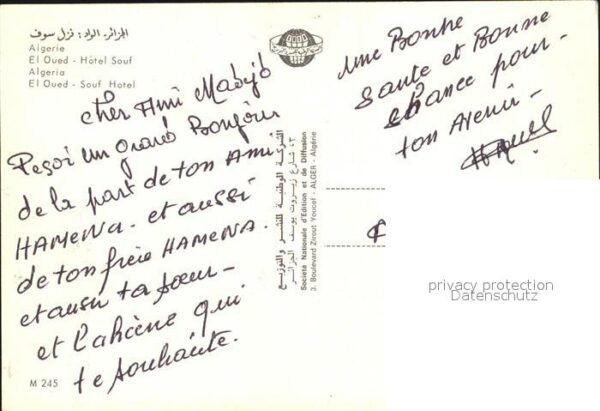 الجزائر. الواد: نزل سوف
Algerie
El Oued - Hôtel Souf
Algeria
El Oued - Souf Hotel
cher Ami Madjid
Reçoi un Grand Bonjour
de la part de ton Ami
HAMENA. et aussi
de ton frère HAMENA.
et aussi ta sœur -
et Lahcène qui
te souhaite.
une Bonne
Sante et Bonne
chance pour -
ton Avenir -
الشركة الوطنية للنشر والتوزيع
٣، شارع زيروت يوسف الجزائر
Société Nationale d'Edition et de Diffusion
3, Boulevard Zirout Youcef - ALGER - Algérie
privacy protection
Datenschutz
M 245